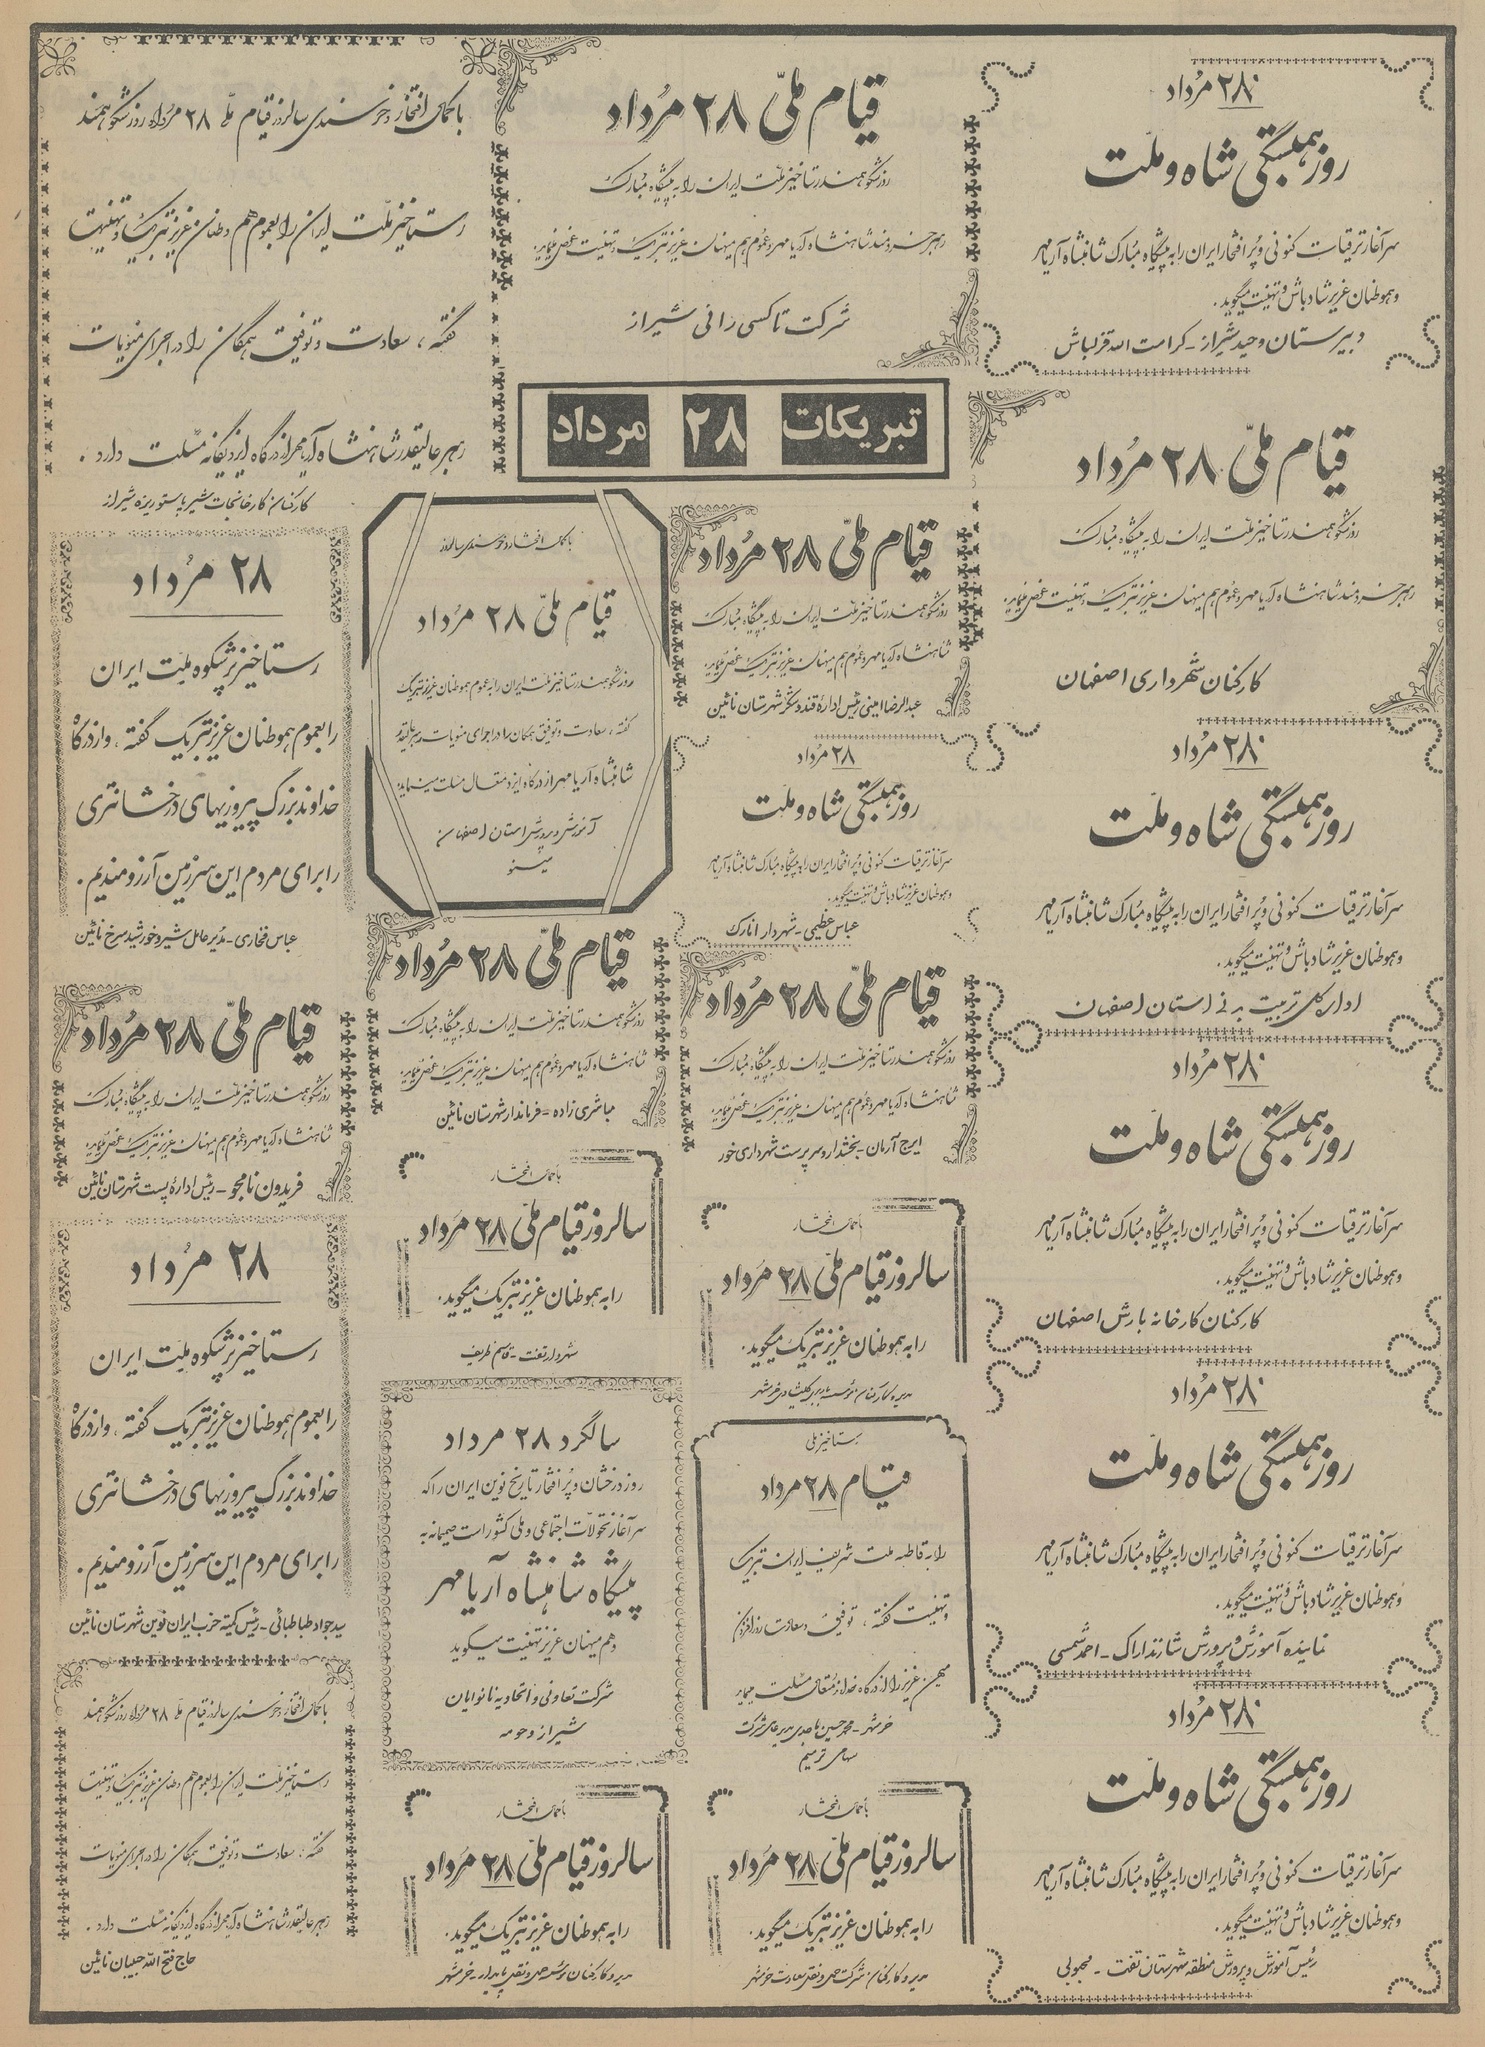 ۲۸ مرداد
روز همبستگی شاه و ملّت
سرآغاز ترقیات کنونی و پر افتخار ایران را به پیشگاه مبارک شاهنشاه آریامهر
و هموطنان عزیز شادباش و تهنیت میگوید.
دبیرستان وحید شیراز - کرامت الله قزلباش
قیام ملّی ۲۸ مرداد
روز شکوهمند رستاخیز ملّت ایران را به پیشگاه مبارک
رهبر خردمند شاهنشاه آریامهر و عموم هم میهنان عزیز تبریک و تهنیت عرض مینماید.
کارکنان شهرداری اصفهان
۲۸ مرداد
روز همبستگی شاه و ملّت
سرآغاز ترقیات کنونی و پر افتخار ایران را به پیشگاه مبارک شاهنشاه آریامهر
و هموطنان عزیز شادباش و تهنیت میگوید.
اداره کل تربیت بدنی استان اصفهان
۲۸ مرداد
روز همبستگی شاه و ملّت
سرآغاز ترقیات کنونی و پر افتخار ایران را به پیشگاه مبارک شاهنشاه آریامهر
و هموطنان عزیز شادباش و تهنیت میگوید.
کارکنان کارخانه بارش اصفهان
۲۸ مرداد
روز همبستگی شاه و ملّت
سرآغاز ترقیات کنونی و پر افتخار ایران را به پیشگاه مبارک شاهنشاه آریامهر
و هموطنان عزیز شادباش و تهنیت میگوید.
نماینده آموزش و پرورش شازند اراک - احمد شمسی
۲۸ مرداد
روز همبستگی شاه و ملّت
سرآغاز ترقیات کنونی و پر افتخار ایران را به پیشگاه مبارک شاهنشاه آریامهر
و هموطنان عزیز شادباش و تهنیت میگوید.
رئیس آموزش و پرورش منطقه شهرستان تفت - محبوبی
قیام ملّی ۲۸ مرداد
روز شکوهمند رستاخیز ملّت ایران را به پیشگاه مبارک
رهبر خردمند شاهنشاه آریامهر و عموم هم میهنان عزیز تبریک و تهنیت عرض مینماید.
شرکت تاکسی رانی شیراز
تبریکات ۲۸ مرداد
قیام ملّی ۲۸ مرداد
روز شکوهمند رستاخیز ملّت ایران را به پیشگاه مبارک
شاهنشاه آریامهر و عموم هم میهنان عزیز تبریک عرض مینماید.
عبدالرضا امینی رئیس ادارۀ قند و شکر شهرستان نائین
۲۸ مرداد
روز همبستگی شاه و ملّت
سرآغاز ترقیات کنونی و پر افتخار ایران را به پیشگاه مبارک شاهنشاه آریامهر
و هموطنان عزیز شادباش و تهنیت میگوید.
عباس عظیمی - شهردار انارک
قیام ملّی ۲۸ مرداد
روز شکوهمند رستاخیز ملّت ایران را به پیشگاه مبارک
شاهنشاه آریامهر و عموم هم میهنان عزیز تبریک عرض مینماید.
ایرج آرمان - بخشدار و سرپرست شهرداری خور
با کمال افتخار
سالروز قیام ملّی ۲۸ مرداد
را به هموطنان عزیز تبریک میگوید.
خرمشهر
رستاخیز ملی
قیام ۲۸ مرداد
را به قاطبه ملت شریف ایران تبریک
و تهنیت گفته، توفیق و سعادت روزافزون
میهن عزیز را از درگاه خداوند متعال مسئلت مینماید
خرمشهر - محمد حسین مدیر عامل شرکت
سهامی ترسیم
با کمال افتخار
سالروز قیام ملّی ۲۸ مرداد
را به هموطنان عزیز تبریک میگوید.
مدیر و کارکنان شرکت حمل و نقل سعادت خرمشهر
با کمال افتخار و خرسندی سالروز
قیام ملّی ۲۸ مرداد
روز شکوهمند رستاخیز ملت ایران را به عموم هموطنان عزیز تبریک
گفته، سعادت و توفیق همگان را در اجرای منویات رهبر عالیقدر
شاهنشاه آریامهر از درگاه ایزد متعال مسئلت مینماید
آموزش و پرورش استان اصفهان
قیام ملّی ۲۸ مرداد
روز شکوهمند رستاخیز ملّت ایران را به پیشگاه مبارک
شاهنشاه آریامهر و عموم هم میهنان عزیز تبریک عرض مینماید.
مباشری زاده - فرماندار شهرستان نائین
با کمال افتخار
سالروز قیام ملّی ۲۸ مرداد
را به هموطنان عزیز تبریک میگوید.
شهردار تفت - قاسم ظریف
سالگرد ۲۸ مرداد
روز درخشان و پر افتخار تاریخ نوین ایران را که
سرآغاز تحولات اجتماعی و ملی کشور است صمیمانه به
پیشگاه شاهنشاه آریامهر
و هم میهنان عزیز تهنیت میگوید
شرکت تعاونی و اتحادیه نانوایان
شیراز و حومه
با کمال افتخار
سالروز قیام ملّی ۲۸ مرداد
را به هموطنان عزیز تبریک میگوید.
مدیر و کارکنان موسسه حمل و نقل پایدار - خرمشهر
با کمال افتخار و خرسندی سالروز قیام ملّی ۲۸ مرداد روز شکوهمند
رستاخیز ملّت ایران را بعموم هم وطنان عزیز تبریک و تهنیت
گفته، سعادت و توفیق همگان را در اجرای منویات
رهبر عالیقدر شاهنشاه آریامهر از درگاه ایزد یگانه مسئلت دارد.
کارکنان کارخانجات شیر پاستوریزه شیراز
۲۸ مرداد
رستاخیز پرشکوه ملّت ایران
را بعموم هموطنان عزیز تبریک گفته، و از درگاه
خداوند بزرگ پیروزیهای درخشانتری
را برای مردم این سرزمین آرزومندیم.
عباس فخاری - مدیر عامل شیر و خورشید سرخ نائین
قیام ملّی ۲۸ مرداد
روز شکوهمند رستاخیز ملّت ایران را به پیشگاه مبارک
شاهنشاه آریامهر و عموم هم میهنان عزیز تبریک عرض مینماید.
فریدون نامجو - رئیس ادارۀ پست شهرستان نائین
۲۸ مرداد
رستاخیز پرشکوه ملّت ایران
را بعموم هموطنان عزیز تبریک گفته، و از درگاه
خداوند بزرگ پیروزیهای درخشانتری
را برای مردم این سرزمین آرزومندیم.
سید جواد طباطبائی - رئیس کمیته حزب ایران نوین شهرستان نائین
با کمال افتخار و خرسندی سالروز قیام ملّی ۲۸ مرداد روز شکوهمند
رستاخیز ملّت ایران را بعموم هم وطنان عزیز تبریک و تهنیت
گفته، سعادت و توفیق همگان را در اجرای منویات
رهبر عالیقدر شاهنشاه آریامهر از درگاه ایزد یگانه مسئلت دارد.
حاج فتح الله حبیبیان نائین